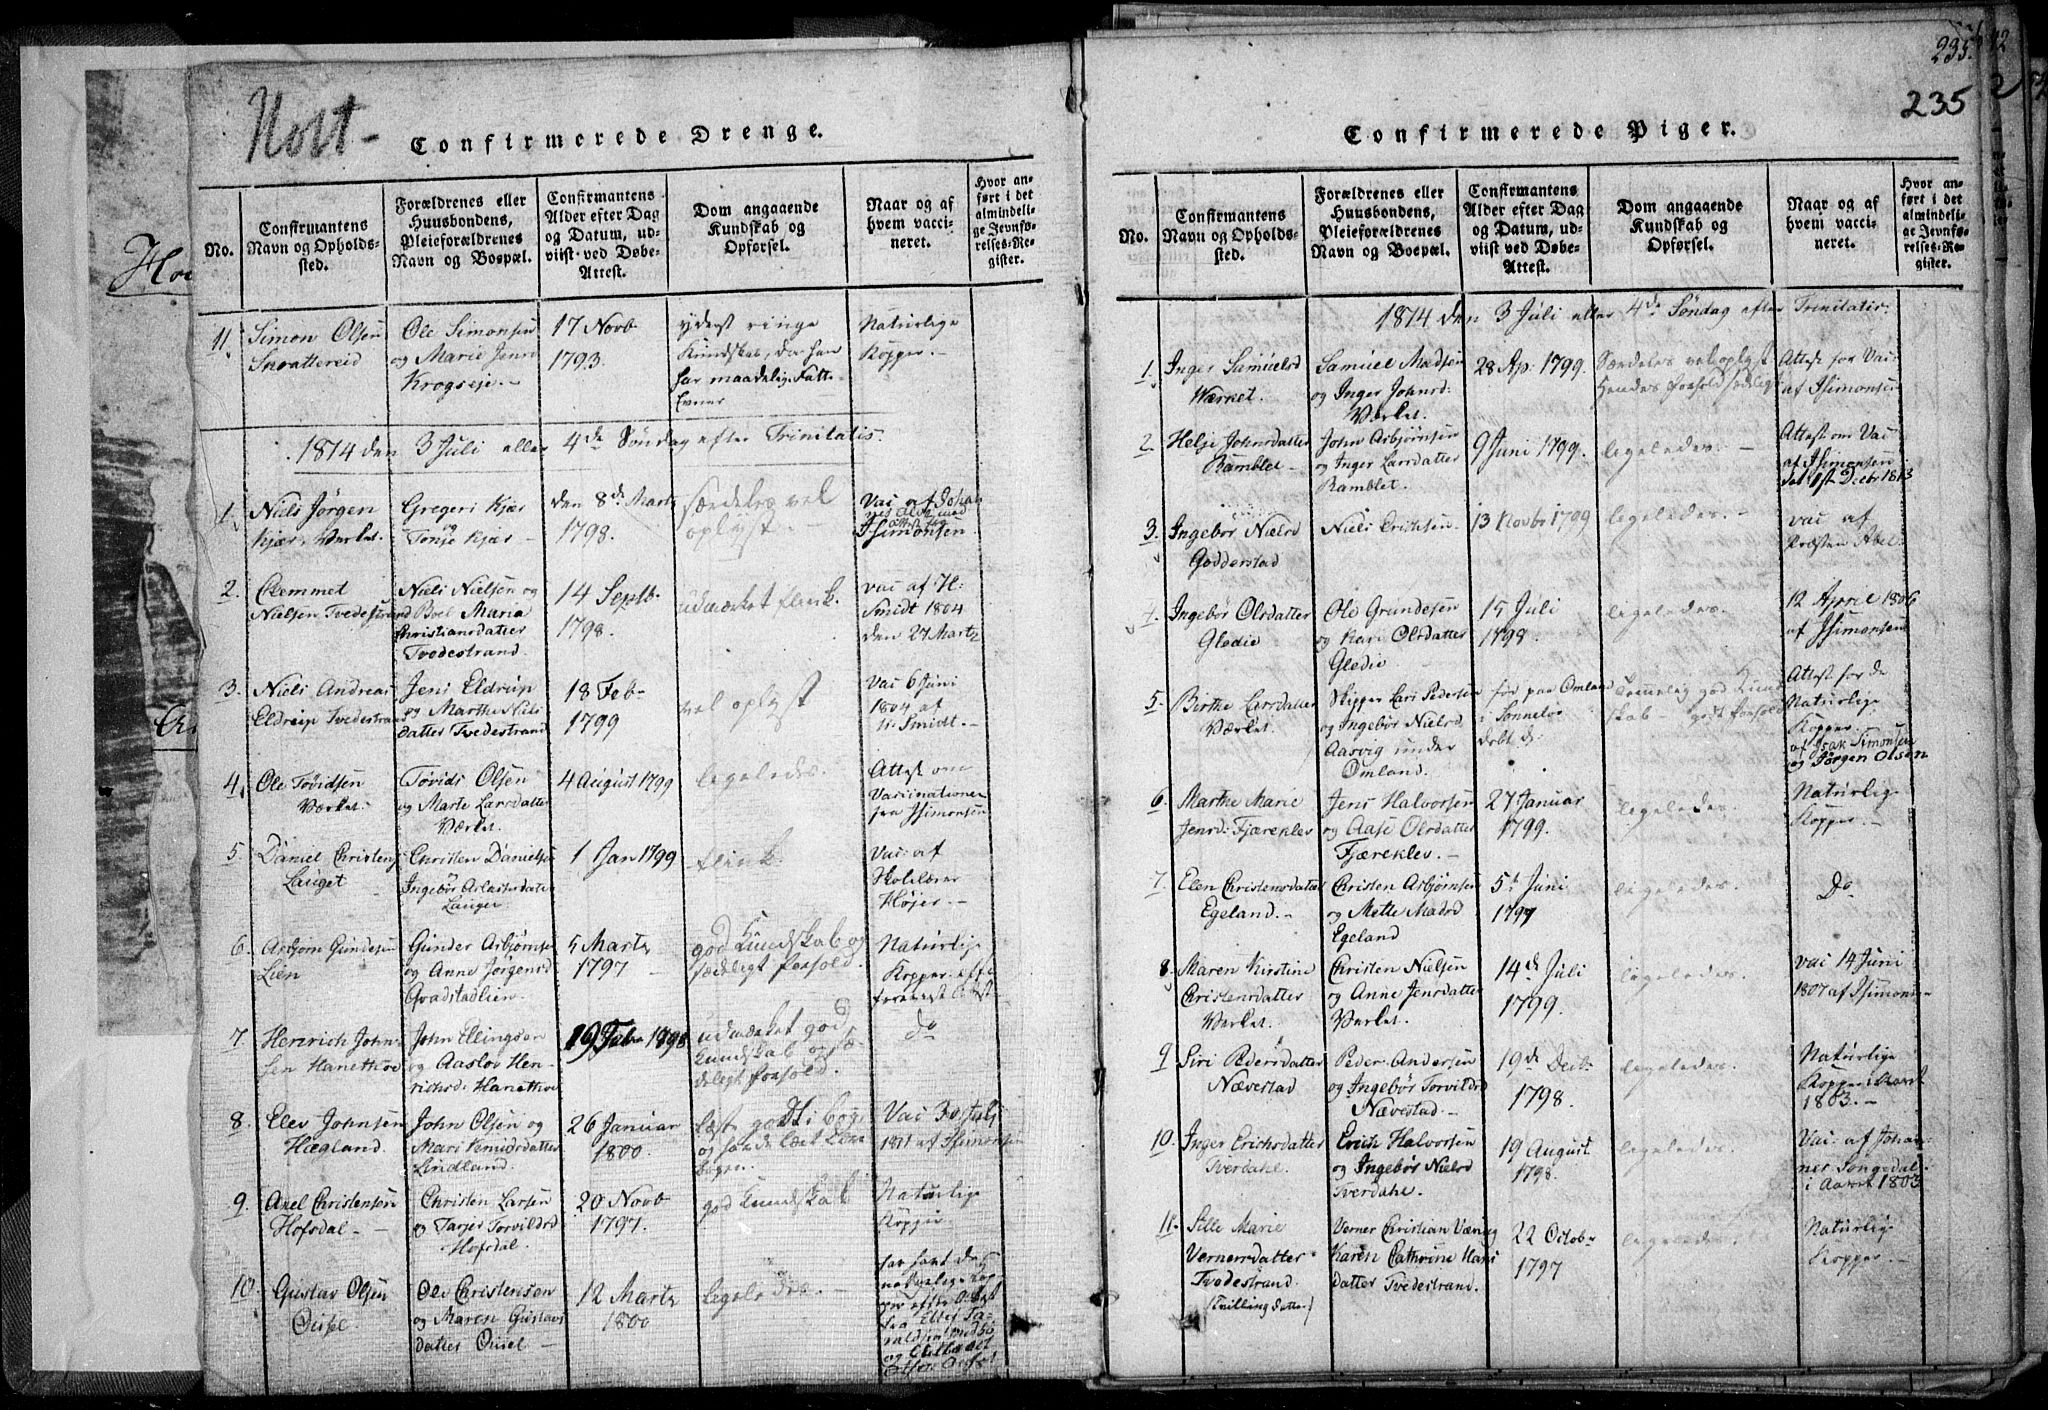 Holt-
Confirmerede Drenge.
No.
Confirmantens
Navn og Opholds-
sted.
Forældrenes eller
Huusbondens,
Pleieforældrenes
Navn og Bopæl.
Confirmantens
Alder efter Dag
og Datum, ud-
viist ved Døbe-
Attest.
Dom angaaende
Kundskab og
Opførsel.
Naar og af
hvem vacci-
neret.
Hvor an-
ført i det
almindeli-
ge Jevnfø-
relses-Re-
gister.
11.
Simon Olsen
Ole Simonsen
og Marie Jensd
Krogseje.-
17 Novb
1793.
yderst ringe
Kundskab, da han
har maadelig Fatte-
Evner
Naturlige
Kopper.-
1814 den 3 Juli eller 4de Søndag efter Trinitatis.
1.
Niels Jørgen
Kjær, Værket.
Gregers Kjær
og
Tonje Kjær-
den 8de Marts
1798.
særdeles vel
oplyst-
Vac af Johan
ISimonsen
2.
Clemmet
Nielsen Tvedestrand
Niels Nielsen og
Boel Maria
Christiansdatter
Tvedestrand.
14 Septb.
1798.
udmærket flink.
vac af H:
Smidt 1804
den 27 Marts
3.
Niels Andreas
Eldrup Tvedestrand
Jens Eldrup
og Marthe Nils
datter Tvedestrand
18 Feb-
1799
vel oplyst
Vac 6 Juni
1804 af
H. Smidt.-
4.
Ole Tovidsen
Værket.
Tovids Olsen
og Marte Larsdatter
Værket.
4 August 1799
ligeledes.
Attest om
Vaccinationen
fra ISimonsen
5.
Daniel Christens:
Lauget
Christen Danielsen
Ingebør Aslachsdatter
Lauget.
1 Jan 1799
flink.
Vac: af
Skolelærer
Højer.-
6.
Asbjørn Gundersen
Lien
Gunder Asbjørnsen
og Anne Jørgensd
Gvadstadlien.
5 Marts
1797
god Kundskab og
sædeligt Forhold.
Naturlige
Kopper efter
foreviist Attest
7.
Henrich John-
sen Hanethoe
John Ellingsen
og Aaslov Hen-
richsd: Hanethoe
19 Febr 1798
udmærket god
Kundskab og sæ-
deligt Forhold.
do
8.
Elev Johnsen
Hægland.
John Olsen og
Mari Knudsdatter
Lindland.
26 Januar
1800.
læst godt i bog,
og har
Vac 30 July
1811 af ISimonsen
9.
Axel Christensen
Hofsdal-
Christen Larsen
og Tarjer Torvildsd
Hofsdal.
20 Novb
1797.
god Kundskab
Naturlige
Kopper
10.
Gustav Olsen
Ousel
Ole Christensen
og Maren Gustavs
datter Ousel.
12 Marts
1800
ligeledes.-
har havt de
naturlige Kop-
per efter Attest
fra
235.
235
Confirmerede Piger.
No.
Confirmantens
Navn og Opholds-
sted.
Forældrenes eller
Huusbondens,
Pleieforældrenes
Navn og Boepæl.
Confirmantens
Alder efter Dag
og Datum, ud-
viist ved Døbe-
Attest.
Dom angaaende
Kundskab og
Opførsel.
Naar og af
hvem vacci-
neret.
Hvor an-
ført i det
almindeli-
ge Jevnfø-
relses-Re-
gister.
1814 den 3 Juli eller 4de Søndag efter Trinitatis-
1.
Inger Samuelsd
Værket.
Samuel Madsen
og Inger Johnsd:
Værket.
28 Ap. 1799.
Særdeles vel oplyst
Hendes Forhold sædeligt
Attest for Vac:
af ISimonsen
2
Helje Johnsdatter
Ramblet-
John Asbjørnsen
og Inger Larsdatter
Ramblet.
9 Juni 1799.
ligeledes.-
Attest om Vac
af ISimonsen
det 1st Decbr 1813
3.
Ingebør Nielsd
Godderstad
Niels Erichsen.
13 Novbr 1799
ligeledes.-
vac af
Præsten Abel.
4.
Ingebør Olsdatter
Gledie
Ole Grundesen
og Kari Olsdatter
Gledie
15 Juli
1798.
ligeledes.
12 April 1806
af ISimonsen
5.
Birthe Larsdatter
Værket.
Skipper Lars Pedersen
og Ingebør Nielsd
Aasvig under
Omland.
før paa Omland
i Sønneløv
døbt d:
Temmelig god Kund
skab- godt Forhold
Attest for de
Naturlige
Kopper
af Isak Simonsen
og Jørgen Olsen
6.
Marthe Marie
Jensd: Fjæreklev
Jens Halvorsen
og Aase Olsdatter
Fjæreklev.-
27 Januar
1799.
ligeledes.
Naturlig
Kopper.-
7.
Elen Christensdatter
Egeland.-
Christen Asbjørnsen
og Mette Madsd
Egeland
5t Juni
1799
ligeledes.
Do
8.
Maren Kirstine
Christensdatter
Værket.
Christen Nielsen
og Anne Jensdatter
Værket.
14de Juli
1799.
ligeledes.
vac 14 Juni
1807 af ISimons-
9
Siri Pedersdatter
Nævestad
Peder Andersen
og Ingebør Torvildsd
Nævestad.-
19de Decb:
1798.
ligeledes.
Naturlige
Kopper i Aaret
1803.-
10.
Inger Erichsdatter
Tverdahl.
Erich Halvorsen
og Ingebør Nielsd
Tverdahl.
19 August
1798.
ligeledes.
Vac: af Johan-
nes Songedal
i Aaret 1803
11.
Sille Marie
Vernersdatter
Tvedestrand.
(Tvillingdatter)
Verner Christian Væning
Karen Cathrine Hans
datter Tvedestrand.
22 Octob-
1797
ligeledes.
Naturlig
Kopper.-